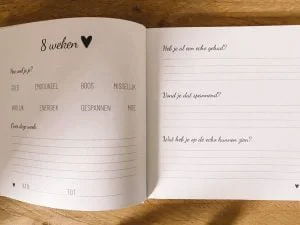 8 weken ♥
Hoe voel je je?
GOED EMOTIONEEL BOOS MISSELIJK
VROLIJK ENERGIEK GESPANNEN MOE
Over deze week:
VAN TOT
Heb je al een echo gehad?
Vond je dat spannend?
Wat heb je op de echo kunnen zien?